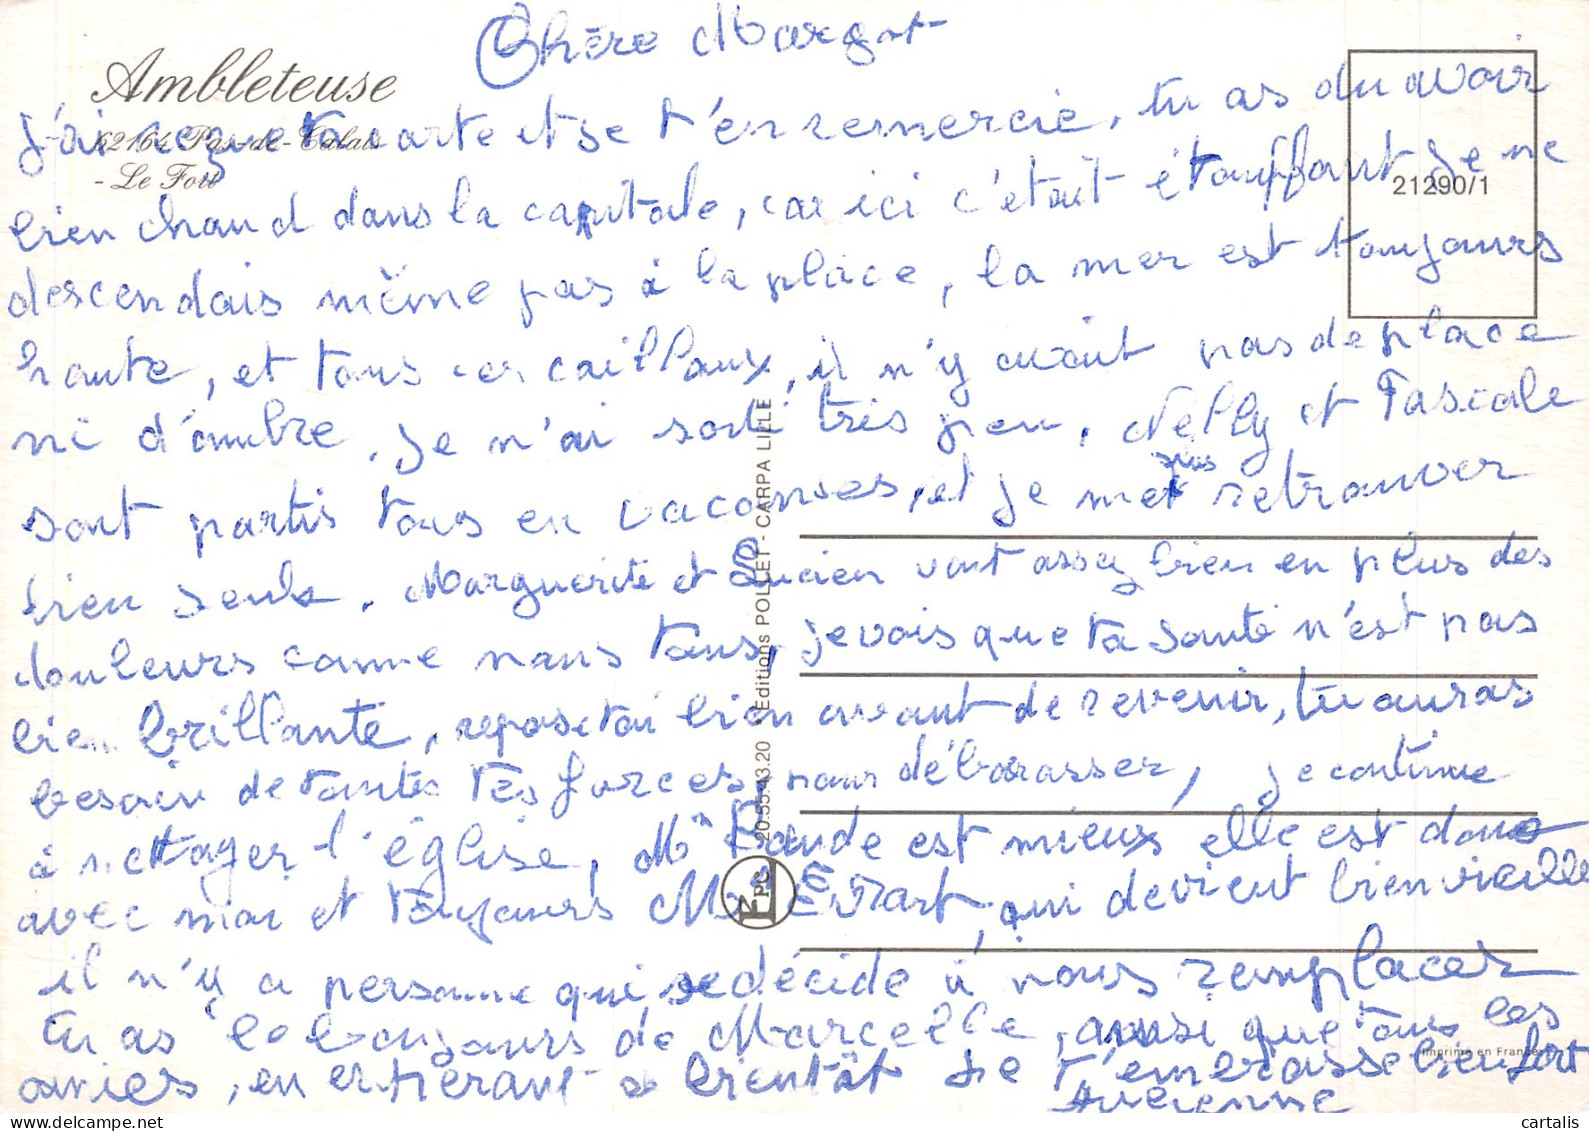 Ambleteuse
62164 Pas-de-Calais
- Le Fort
21290/1
Chère Margot
J'ai reçue ta carte et je t'en remercie, tu as du avoir
bien chaud dans la capitale, car ici c'était étouffant je ne
descendais même pas à la place, la mer est toujours
haute, et tous ces cailloux, il n'y avait pas de place
ni d'ombre. je n'ai sorti très peu, Nelly et Pascale
sont partis tous en vacanses, et je me suis retrouver
bien seule. Marguerite et Lucien vont assez bien en plus des
douleurs comme nous tous, je vois que ta santé n'est pas
bien brillante, repose toi bien avant de revenir, tu auras
besoin de toutes tes forces pour débarasser, je continue
à nettoyer l'église, Mm Baude est mieux elle est donc
avec moi et toujours Mme Evrart, qui devient bien vieille
il n'y a personne qui se décide à nous remplacer
Tu as le bonjours de Marcelle, ainsi que tous les
amies, en espérant a bientôt je t'embrasse bien fort
Editions POLLET - CARPA LILLE
20.55.43.20
EPC
Imprimé en France